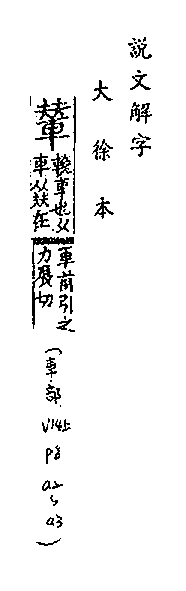 說文解字
大徐本
輦
輓車也从
車从㚘在
車前引之
力展切
(車部 V14上 P8 a2~a3)